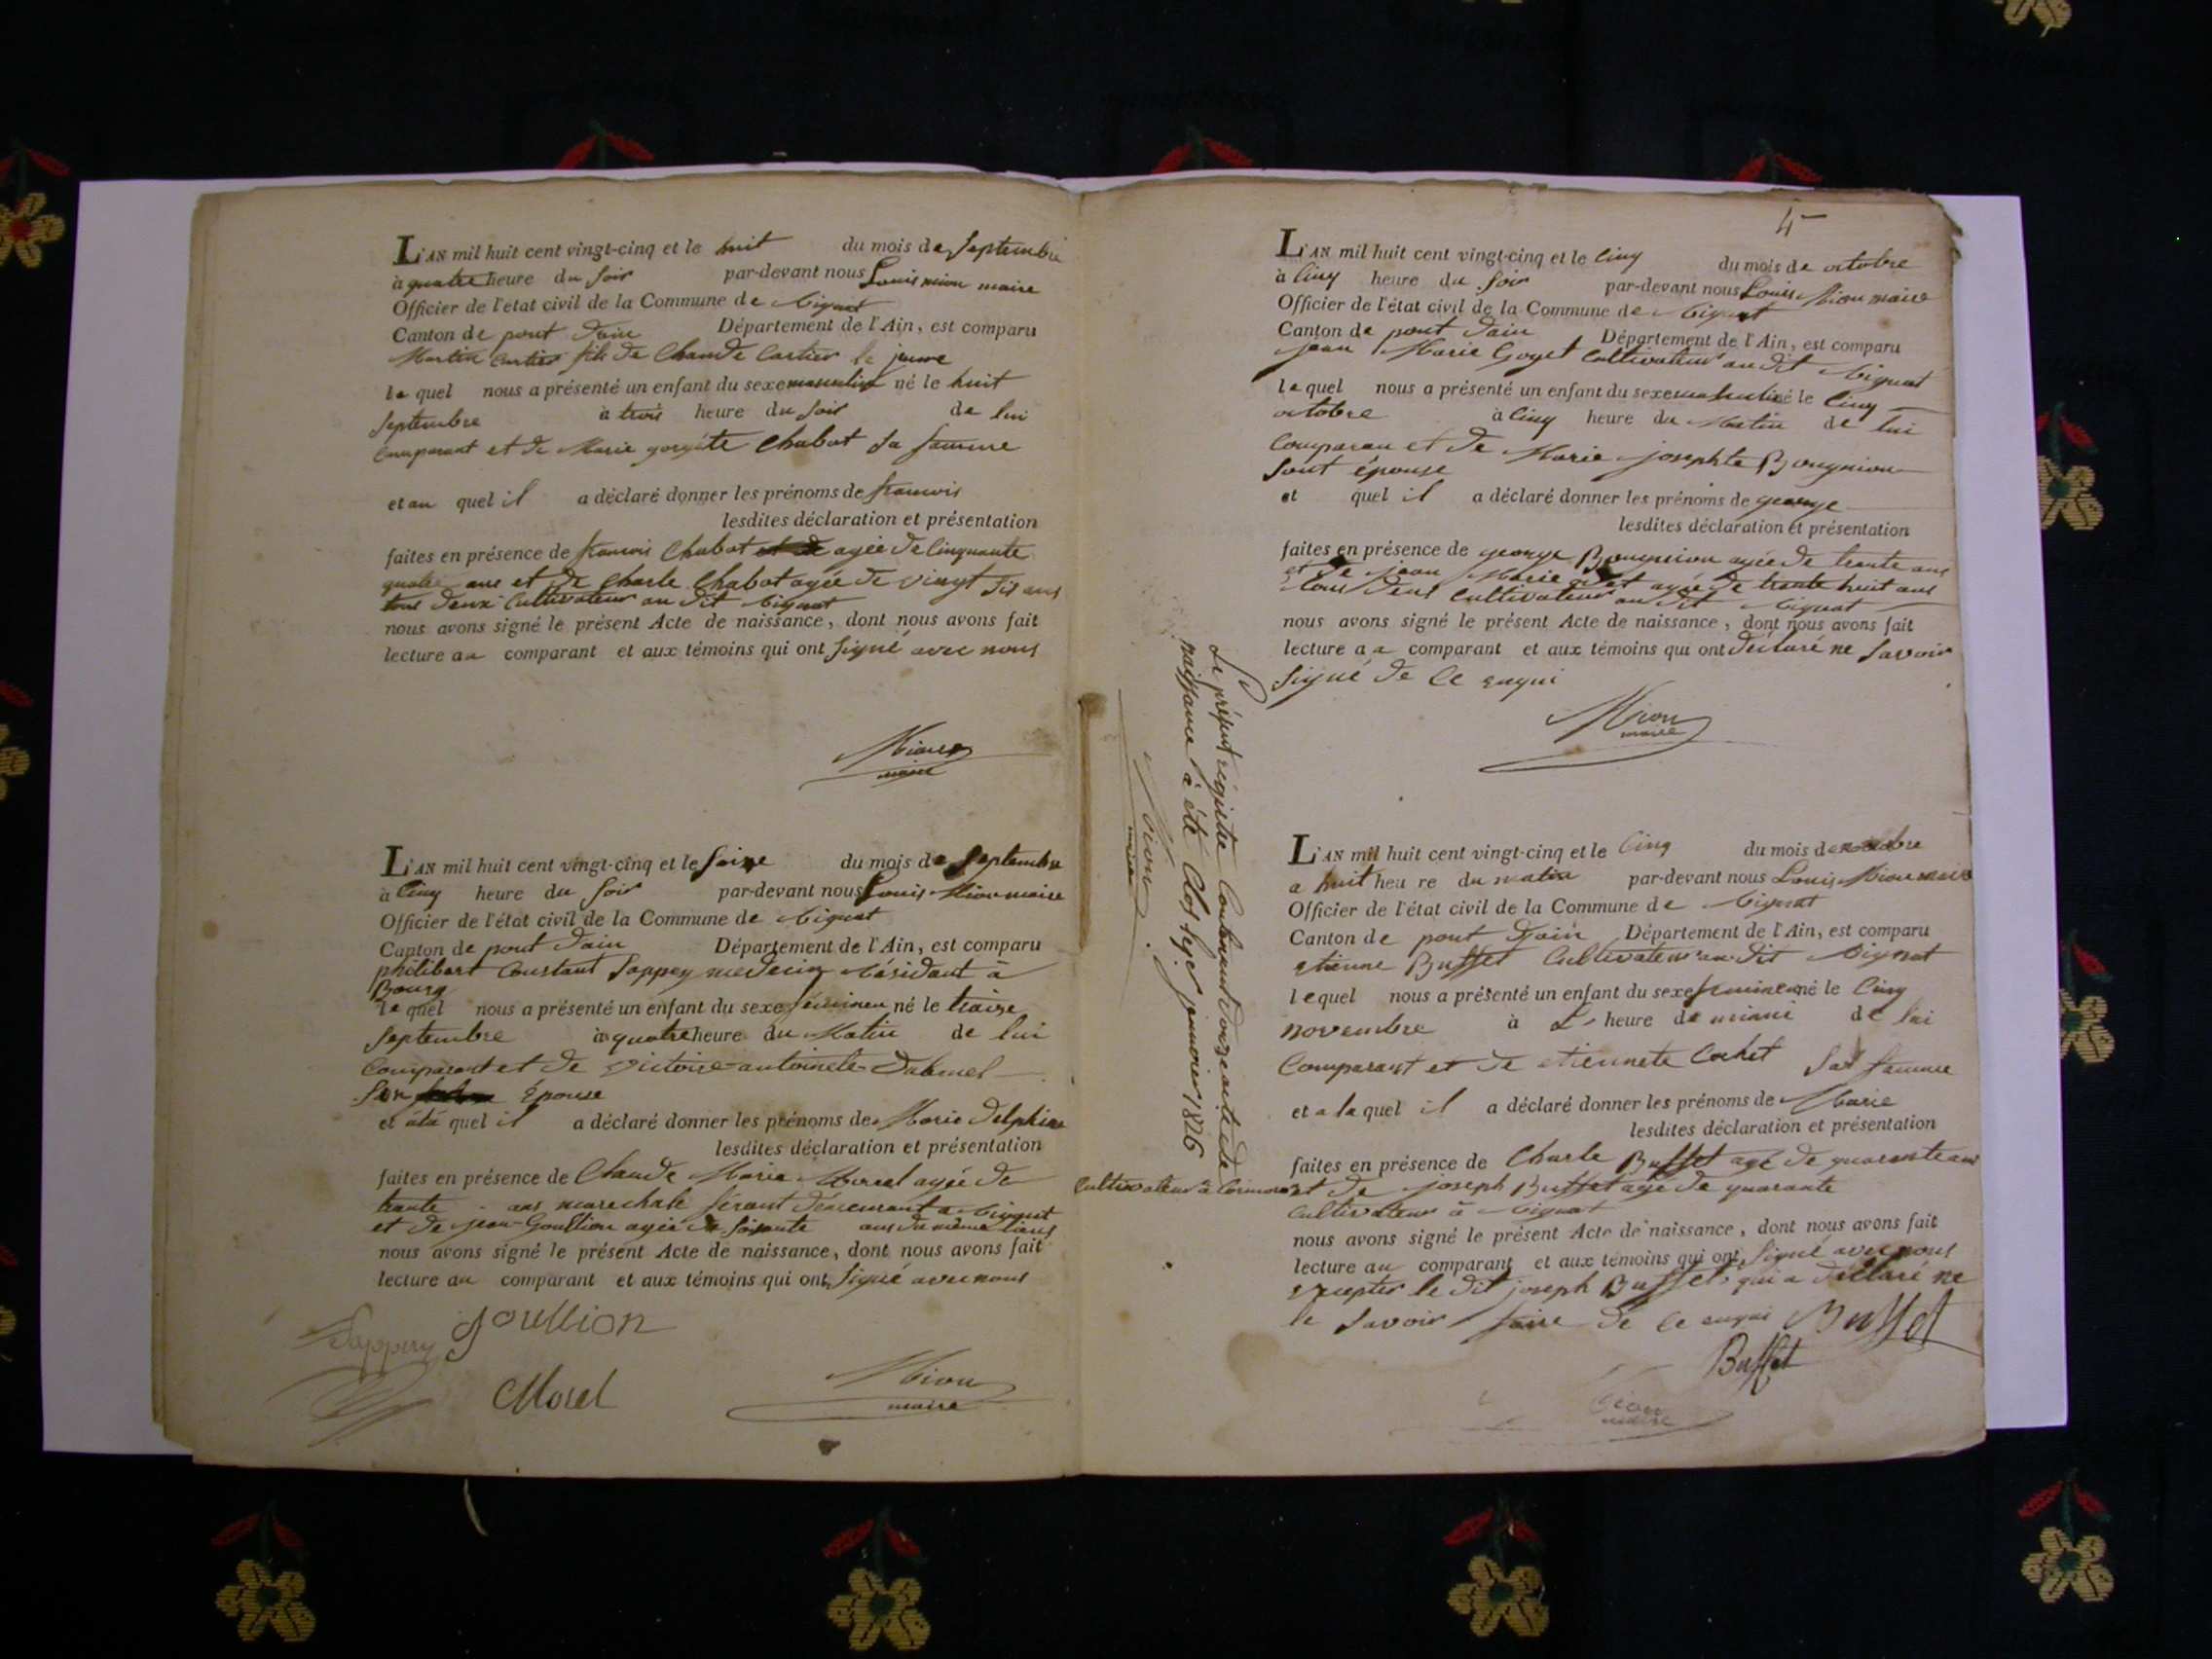 L'AN mil huit cent vingt-cinq et le huit du mois de Septembre
à quatre heure du Soir par-devant nous Louis mion maire
Officier de l'etat civil de la Commune de
Canton de pont dain Département de l'Ain, est comparu
Martin Cartier fils de Claude Cartier le jeune
le quel nous a présenté un enfant du sexe masculin né le huit
Septembre à trois heure du Soir de lui
Comparant et de Marie Chabot Sa famme
et au quel il a déclaré donner les prénoms de francois
lesdites déclaration et présentation
faites en présence de francois Chabot agée de Cinquante
quatre ans et de Charle Chabot agée de vingt Sis ans
tous deux Cultivateur au dit
nous avons signé le présent Acte de naissance, dont nous avons fait
lecture au comparant et aux témoins qui ont Signé avec nous
Mion
maire
L'AN mil huit cent vingt-cinq et le Saize du mois de Septembre
à Cinq heure du Soir par-devant nous Louis Mion maire
Officier de l'état civil de la Commune de
Canton de pont dain Département de l'Ain, est comparu
philibert Constant Sappey medecin Résidant à
Bourg
le quel nous a présenté un enfant du sexe féminen né le traize
Septembre à quatre heure du Matin de lui
Comparant et de victoire antoinete
Son Épouse
et àlà quel il a déclaré donner les prénoms de Marie Delphine
lesdites déclaration et présentation
faites en présence de Claude Marie Morel agée de
trante ans marechale férant demeurant a
et de jean Goullion agée de Soisante ans du même lieus
nous avons signé le présent Acte de naissance, dont nous avons fait
lecture au comparant et aux témoins qui ont Signé avec nous
Sappey Goullion
Morel Mion
maire
4
L'AN mil huit cent vingt-cinq et le Cinq du mois de octobre
à Cinq heure du Soir par-devant nous Louis Mion maire
Officier de l'état civil de la Commune de
Canton de pont dain Département de l'Ain, est comparu
jean Marie Goyet Cultivateur au dit
le quel nous a présenté un enfant du sexe masculin né le Cinq
octobre à Cinq heure du Matin de lui
Comparan et de Marie josephte Bougnion
Sont épouse
et quel il a déclaré donner les prénoms de george
lesdites déclaration et présentation
faites en présence de george Bougnion agée de trante ans
et de jean Marie agée de trante huit ans
tous deus Cultivateur au dit
nous avons signé le présent Acte de naissance, dont nous avons fait
lecture a comparant et aux témoins qui ont déclaré ne Savoir
Signé de Ce enqui
Mion
maire
Le présent registre Contenant douze acte de
naissance à été Clos le janvier 1826
Mion
maire
L'AN mil huit cent vingt-cinq et le Cinq du mois de
a huit heure du matin par-devant nous Louis Mion maire
Officier de l'état civil de la Commune de
Canton de pont Département de l'Ain, est comparu
etienne Buffet Cultivateur au dit
lequel nous a présenté un enfant du sexe né le Cinq
novembre à heure de de lui
Comparant et de etiennete Cochet Sa famme
et a la quel il a déclaré donner les prénoms de Marie
lesdites déclaration et présentation
faites en présence de Charle Buffet agé de quarante ans
Cultivateur à et de joseph Buffet agé de quarante
Cultivateur à
nous avons signé le présent Acte de naissance, dont nous avons fait
lecture au comparant et aux témoins qui ont Signé avec nous
excepter le dit joseph Buffet qui a déclaré ne
le Savoir faire de Ce enqui Buffet
Buffet
Mion
maire